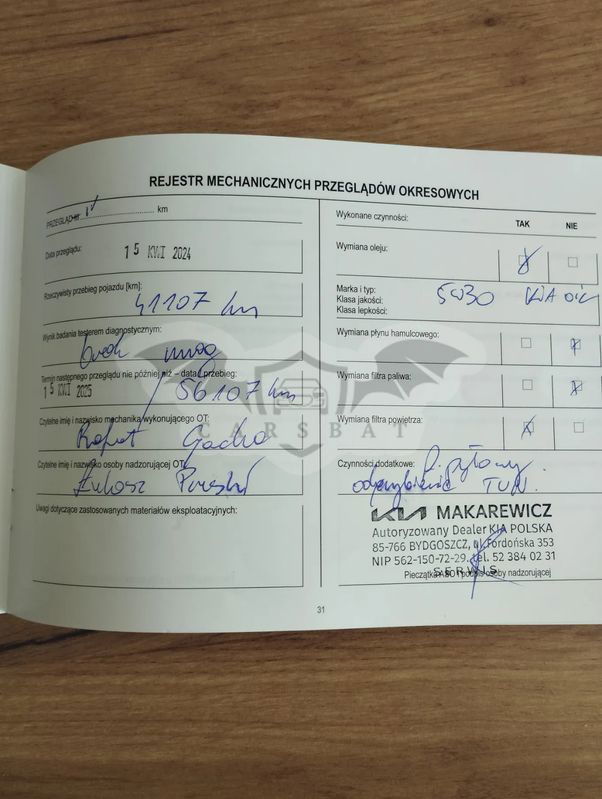 REJESTR MECHANICZNYCH PRZEGLĄDÓW OKRESOWYCH
PRZEGLĄD nr ........................ km
Data przeglądu:
15 KWI 2024
Rzeczywisty przebieg pojazdu [km]:
41107 km
Wynik badania testerem diagnostycznym:
brak uwag
Termin następnego przeglądu nie później niż – data / przebieg:
15 KWI 2025 / 56107 km
Czytelne imię i nazwisko mechanika wykonującego OT:
Rafał
Czytelne imię i nazwisko osoby nadzorującej OT:
Łukasz
Uwagi dotyczące zastosowanych materiałów eksploatacyjnych:
Wykonane czynności:
TAK NIE
Wymiana oleju:
Marka i typ:
Klasa jakości:
Klasa lepkości:
5W30 KIA OIL
Wymiana płynu hamulcowego:
Wymiana filtra paliwa:
Wymiana filtra powietrza:
Czynności dodatkowe: F. pyłkowy
odgrzybianie
KIA MAKAREWICZ
Autoryzowany Dealer KIA POLSKA
85-766 BYDGOSZCZ, ul. Fordońska 353
NIP 562-150-72-29, tel. 52 384 02 31
SERWIS
Pieczątka ASO i podpis osoby nadzorującej
31
CARSBAT